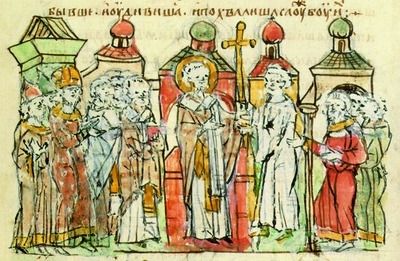 бывше . иоудивиша , ипохвалиша слоуⷤбоу иⷯ :~